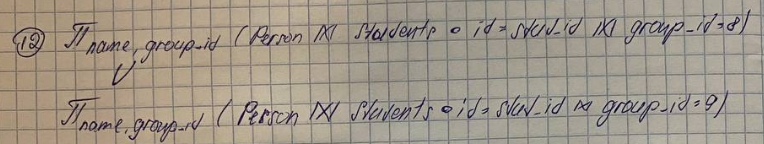 12 Π name, group_id ( Person ⋈ Students ∘ id = stud_id ⋈ group_id=8)
∪
Π name, group_id ( Person ⋈ Students ∘ id = stud_id ⋈ group_id = 9)